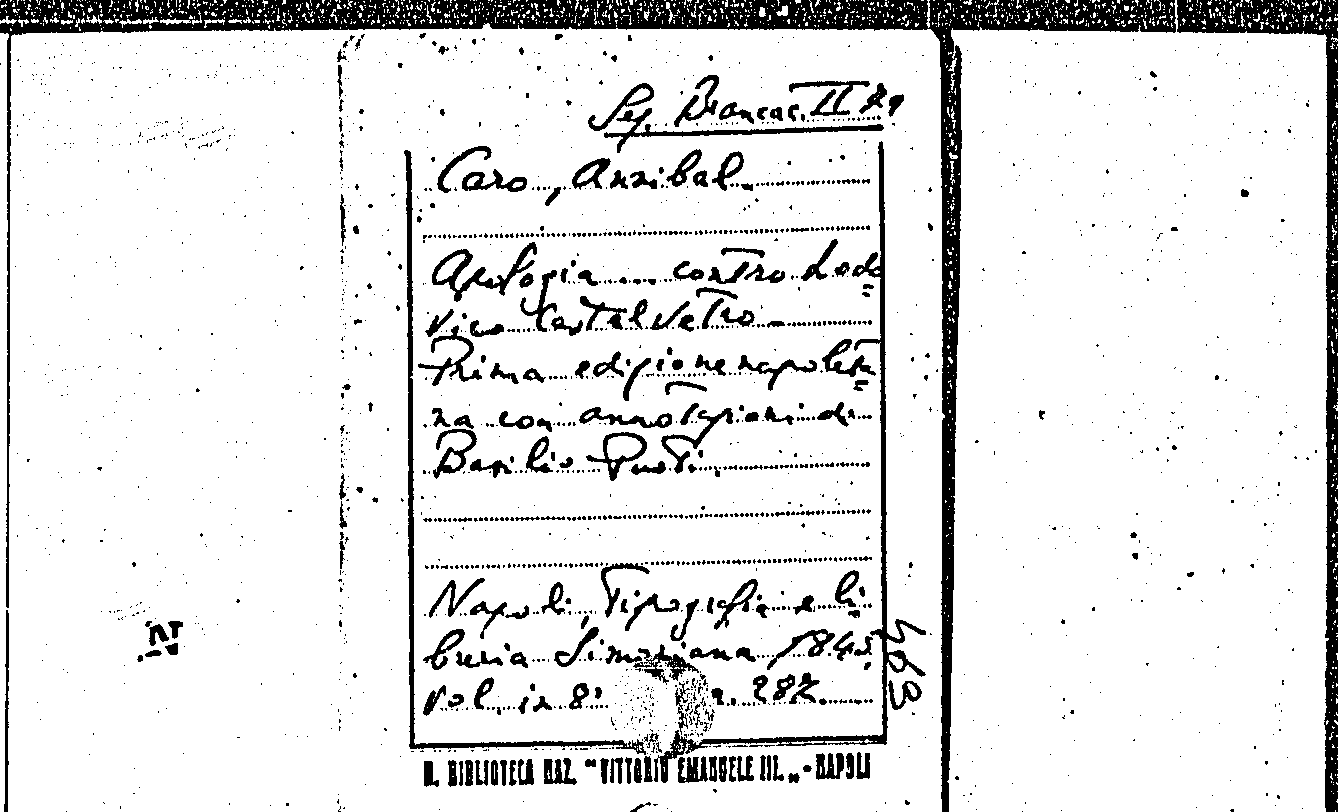 Sez. Brancac. II
Caro, Annibal.
Apologia ... contro Lodo
vico Castelvetro -
Prima edizione napoleta
na con annotazioni di
Basilio Puoti.
Napoli, Tipografia e li
breria Simoniana 1845.
vol. in 8° 287.
R. BIBLIOTECA NAZ. "VITTORIO EMANUELE III." - NAPOLI